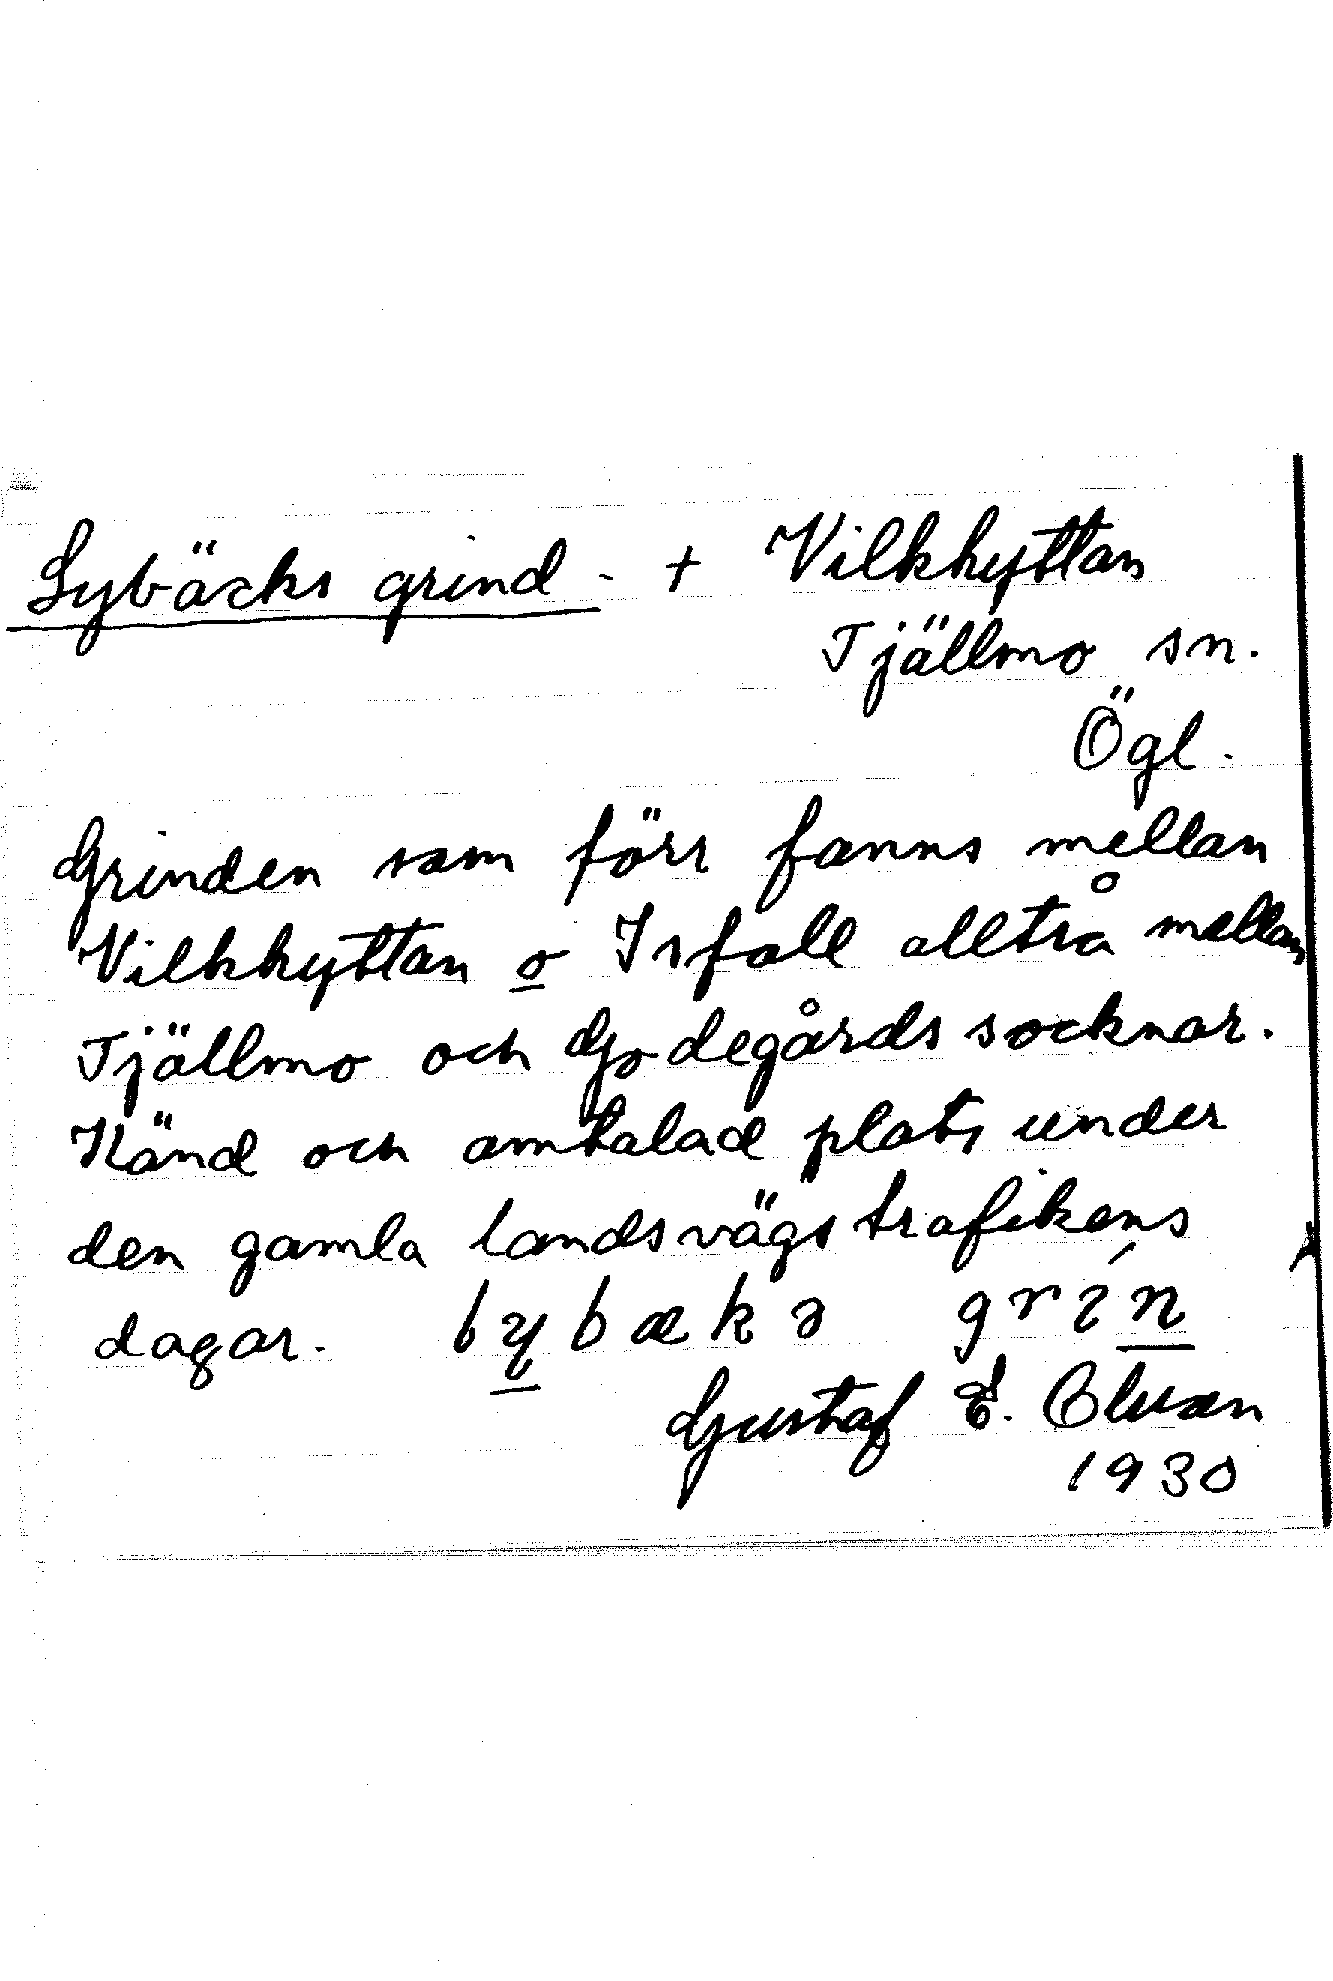 Lybäcks grind. + Vilkhyttan
Tjällmo sn.
Ögl.
Grinden som förr fanns mellan
Vilkhyttan o Isfall alltså mellan
Tjällmo och Godegårds socknar.
Känd och omtalad plats under
den gamla landsvägstrafikens
dagar.
Gustaf E. Olsson
1930